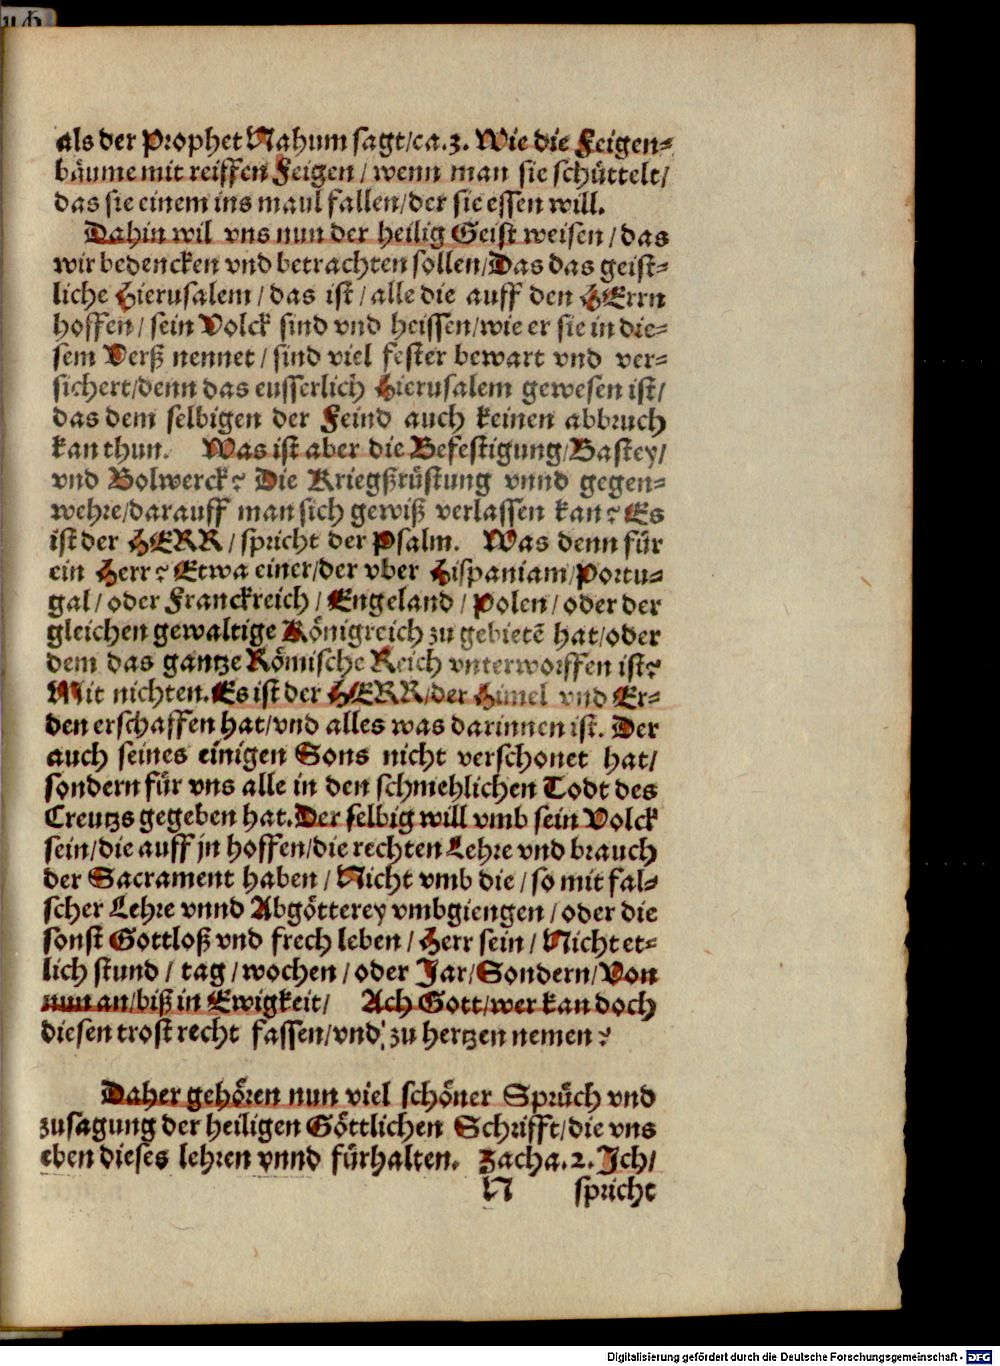 als der Prophet Nahum sagt/ca.3. Wie die Feigen-
bäume mit reiffen Feigen/ wenn man sie schüttelt/
das sie einem ins maul fallen/der sie essen will.
Dahin wil vns nun der heilig Geist weisen/das
wir bedencken vnd betrachten sollen/Das das geist-
liche Hierusalem/das ist/alle die auff den HErrn
hoffen/ sein Volck sind vnd heissen/wie er sie in die-
sem Verß nennet/ sind viel fester bewart vnd ver-
sichert/denn das eusserlich Hierusalem gewesen ist/
das dem selbigen der Feind auch keinen abbruch
kan thun. Was ist aber die Befestigung/Bastey/
vnd Bolwerck? Die Kriegßrüstung vnnd gegen-
wehre/darauff man sich gewiß verlassen kan? Es
ist der HERR/ spricht der Psalm. Was denn für
ein Herr? Etwa einer/der vber Hispaniam/Portu-
gal/ oder Franckreich/ Engeland/ Polen/ oder der
gleichen gewaltige Königreich zu gebietē hat/oder
dem das gantze Römische Reich vnterworffen ist?
Mit nichten. Es ist der HERR/der Himel vnd Er-
den erschaffen hat/vnd alles was darinnen ist. Der
auch seines einigen Sons nicht verschonet hat/
sondern für vns alle in den schmehlichen Todt des
Creutzs gegeben hat. Der selbig will vmb sein Volck
sein/die auff jn hoffen/die rechten Lehre vnd brauch
der Sacrament haben/ Nicht vmb die/ so mit fal-
scher Lehre vnnd Abgötterey vmbgiengen/ oder die
sonst Gottloß vnd frech leben/ Herr sein/ Nicht et-
lich stund/ tag/ wochen/ oder Jar/ Sondern/ Von
nun an/biß in Ewigkeit/ Ach Gott/wer kan doch
diesen trost recht fassen/vnd zu hertzen nemen?
Daher gehören nun viel schöner Sprüch vnd
zusagung der heiligen Göttlichen Schrifft/die vns
eben dieses lehren vnnd fürhalten. Zacha.2. Ich/
N spricht
Digitalisierung gefördert durch die Deutsche Forschungsgemeinschaft - DFG